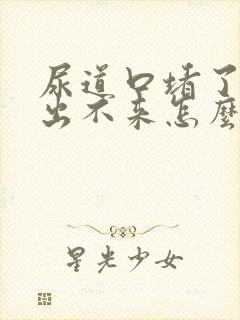 尿道口堵了
出不来怎麼
星光少女